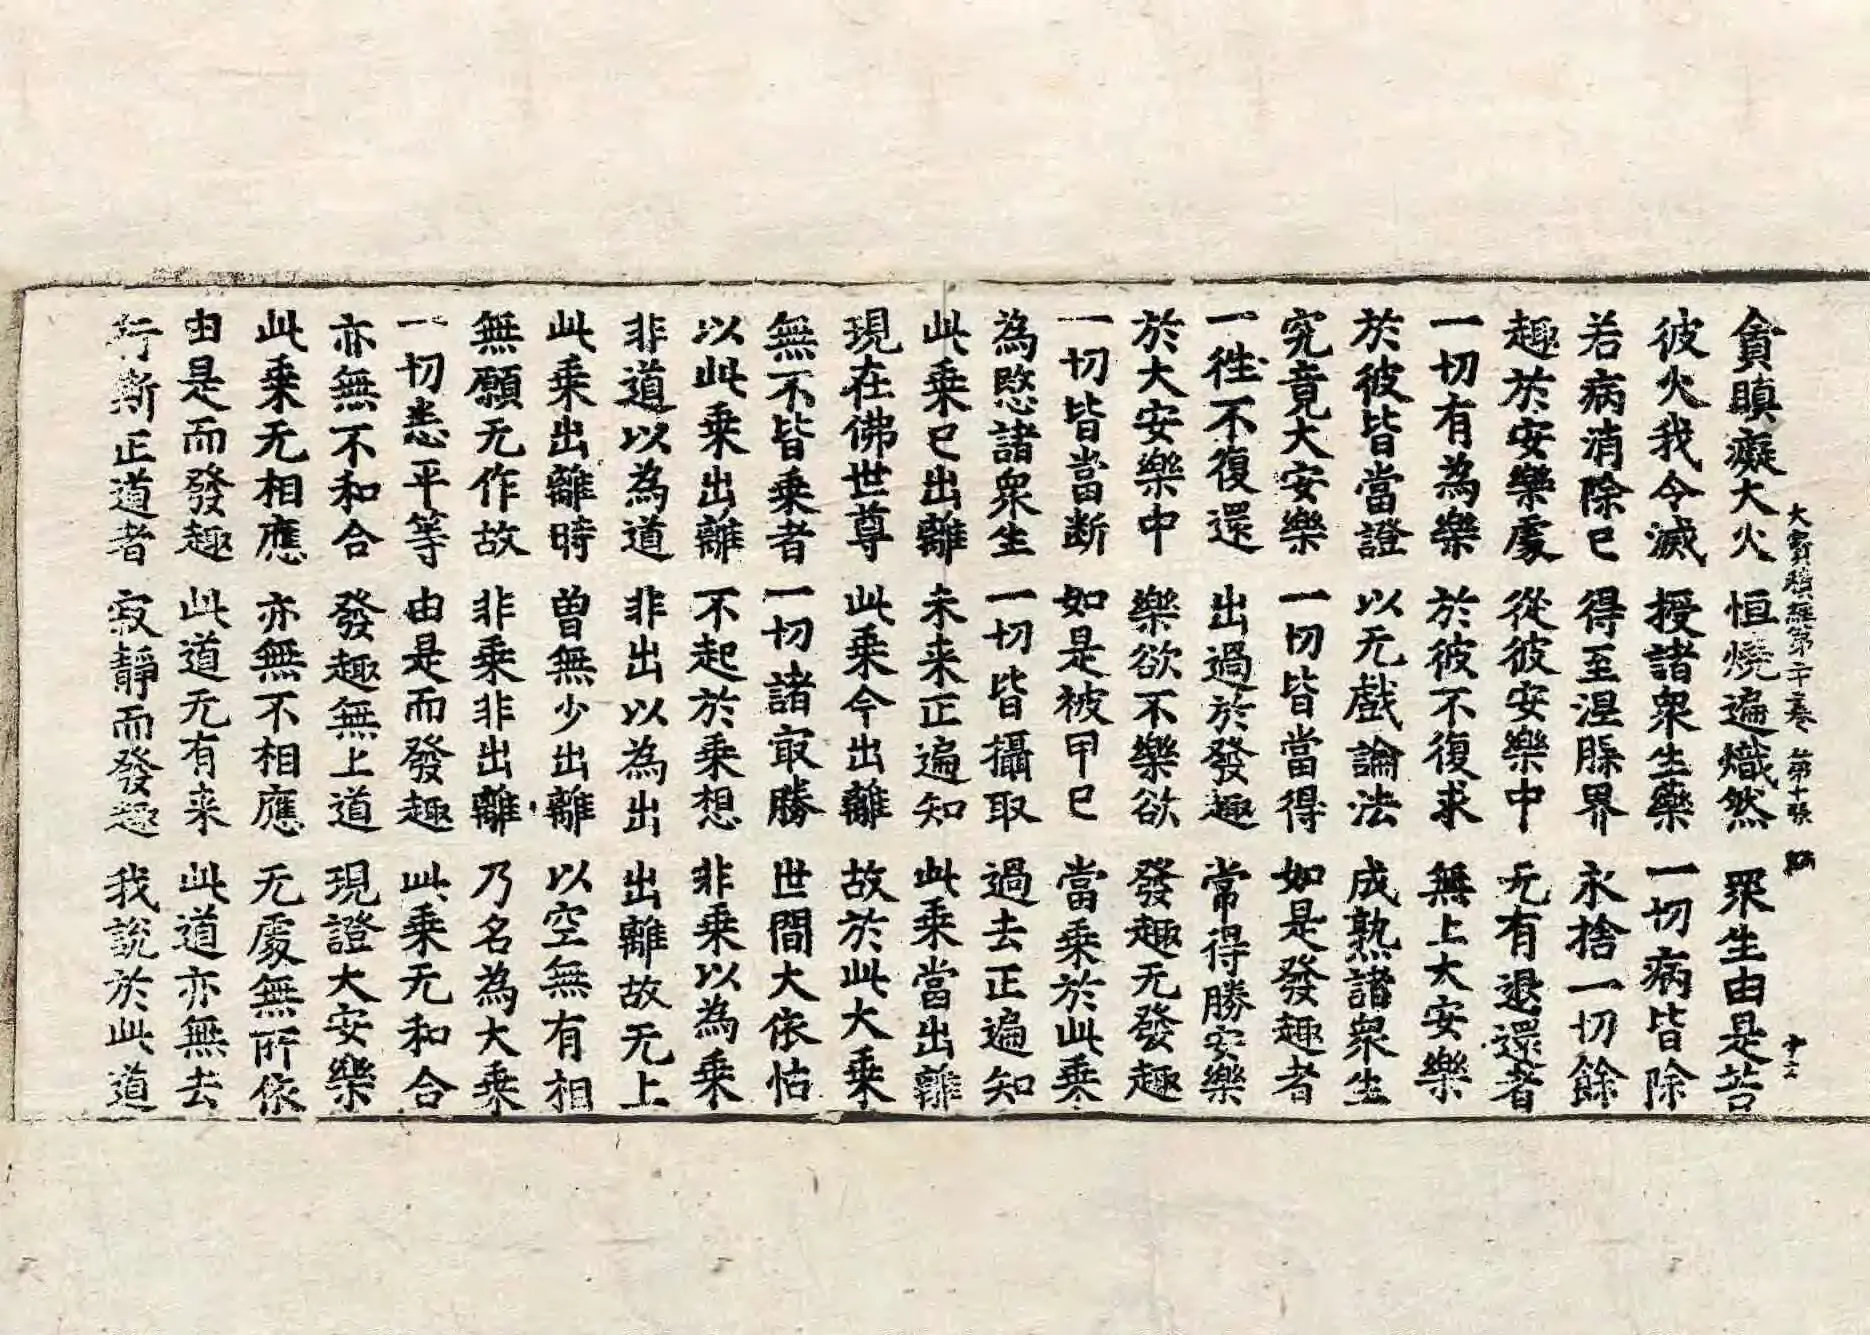 大寳積經第二十二卷 第十張
貪瞋癡大火 恒燒遍熾然 眾生由是苦
彼火我今滅 授諸衆生藥 一切病皆除
若病消除已 得至涅槃界 永捨一切餘
趣於安樂處 從彼安樂中 无有退還者
一切有為樂 於彼不復求 無上大安樂
於彼皆當證 以无戲論法 成熟諸衆生
究竟大安樂 一切皆當得 如是發趣者
一徃不復還 出過於發趣 常得勝安樂
於大安樂中 樂欲不樂欲 發趣无發趣
一切皆當断 如是被甲已 當乗於此乗
為愍諸衆生 一切皆攝取 過去正遍知
此乗已出離 未来正遍知 此乗當出離
現在佛世尊 此乗今出離 故於此大乗
無不皆乗者 一切諸冣勝 世間大依怙
以此乗出離 不起於乗想 非乗以為乗
非道以為道 非出以為出 出離故无上
此乗出離時 曾無少出離 以空無有相
無願无作故 非乗非出離 乃名為大乗
一切悉平等 由是而發趣 此乗无和合
亦無不和合 發趣無上道 現證大安樂
此乗无相應 亦無不相應 无處無所依
由是而發趣 此道无有来 此道亦無去
行斯正道者 寂靜而發趣 我說於此道